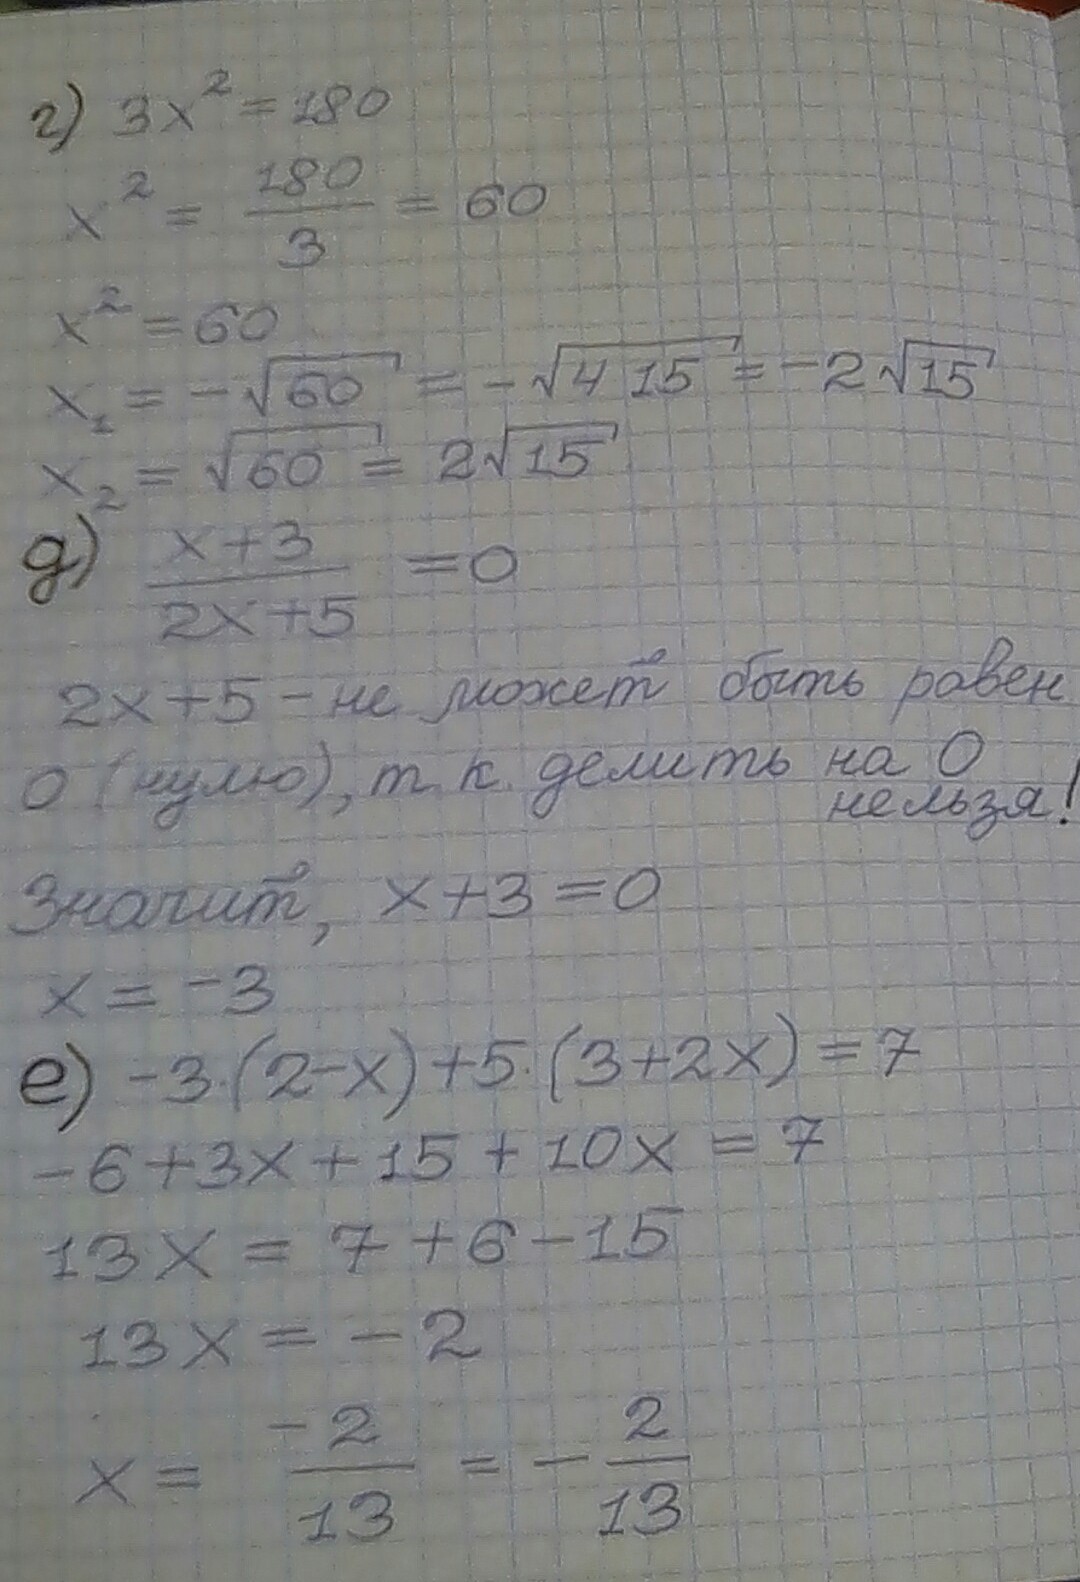 г) 3x² = 180
x² = 180/3 = 60
x² = 60
x₁ = -√60 = -√4 15 = -2√15
x₂ = √60 = 2√15
д) (x+3)/(2x+5) = 0
2x+5 - не может быть равен
0 (нулю), т.к. делить на 0
нельзя!
Значит, x+3=0
x = -3
е) -3·(2-x)+5·(3+2x)=7
-6+3x+15+10x=7
13x = 7+6-15
13x = -2
x = -2/13 = -2/13